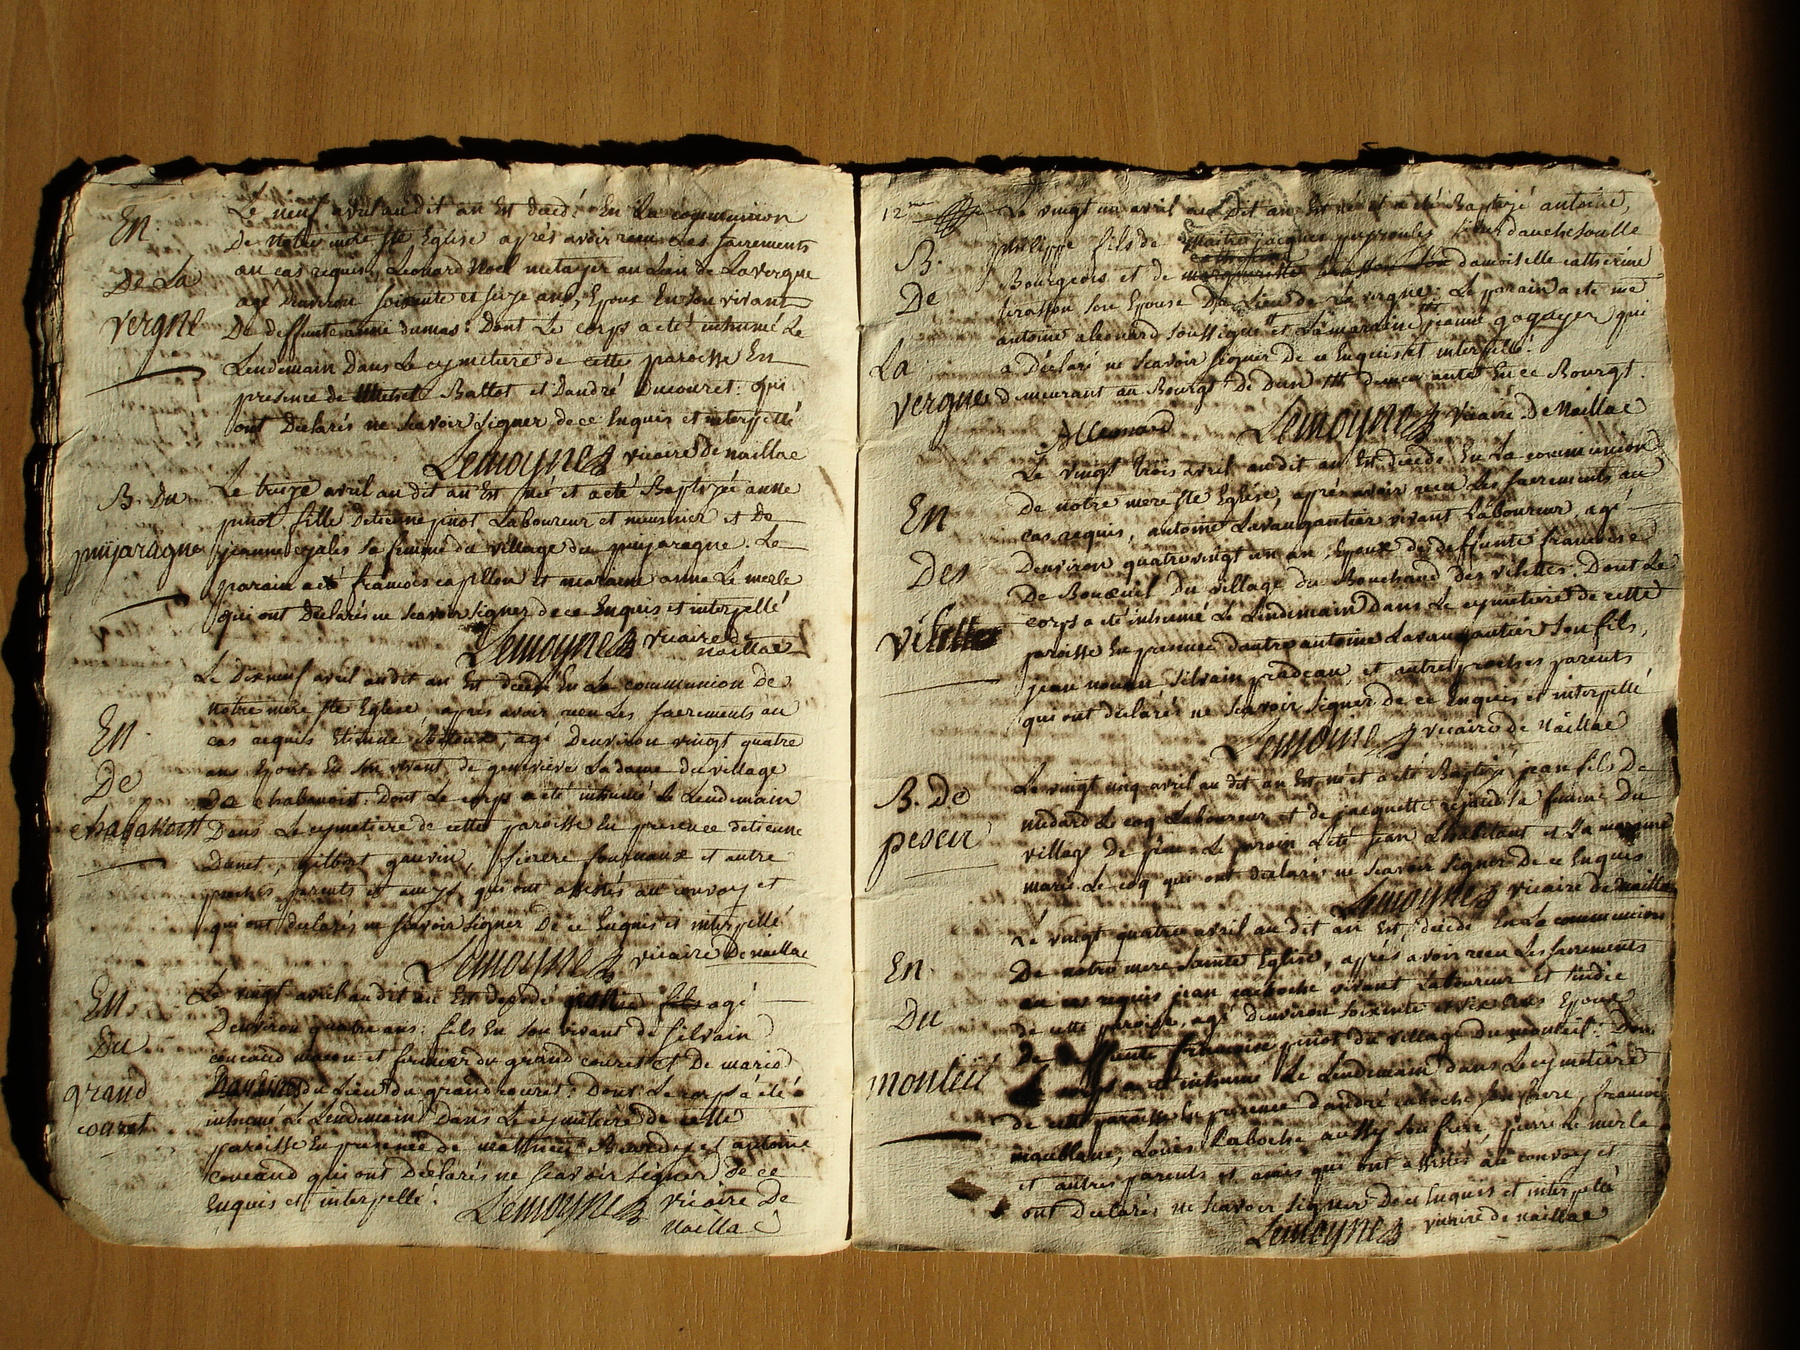 En
De La
vergne
Le neuf avril au dit an Est decedé En La communion
De notre mere ste Eglise aprés avoir reçu Les sacrements
au cas requis, Leonard Noël metayer au Lieu de Lavergne
agé denviron soixante et seize ans, Epoux En son vivant
De deffunte anne dumas: Dont Le corps a eté inhumé Le
Lendemain Dans Le cymetiere de cette paroisse En
presence de Michel Battet et Dandré Ducouret: qui
ont Declarés ne scavoir signer de ce Enquis et interpellé
Lemoyne vicaire de naillac
B. Du
puyjaragne
Le treize avril au dit an Est né et a eté Baptizée anne
pinot fille detienne pinot Laboureur et meusnier et De
jeanne sa femme du village du puyjaragne. Le
parain a eté francois capillon et maraine anne Le merle
qui ont Declarés ne scavoir signer de ce Enquis et interpellé
Lemoyne vicaire de
naillac
En
De
chabanoist
Le Dixneuf avril au dit an Est decedé En La communion De
notre mere ste Eglise aprés avoir reçu Les sacrements au
cas requis Etienne agé Denviron vingt quatre
ans Epoux En son vivant de genevieve Ladame du village
De chabanoist. Dont Le corps a eté inhumé Le Lendemain
Dans Le cymetiere de cette paroisse En presence detienne
Danet, gilbert gauvin, pierre fournaux et autre
proches parents et amys qui ont assistés au convoy et
qui ont declarés ne scavoir signer De ce Enquis et interpellé
Lemoyne vicaire De naillac
En
Du
grand
couret
Le vingt avril au dit an Est decedé agé
Denviron quatre ans: fils En son vivant de silvain
couraud maçon et fermier du grand couret et De marie
du Lieu du grand couret: Dont Le corps a eté
inhumé Le Lendemain Dans Le cymetiere de cette
paroisse En presence de mathieu et antoine
couraud qui ont declarés ne scavoir signer de ce
Enquis et interpellé.
Lemoyne vicaire De
Naillac
12me
B.
De
La
vergne
Le vingt un avril au Dit an Est né et a eté Baptizé antoine,
philippe fils de Maitre jacques sieur
Bourgeois et de damoiselle catherine
son Epouse Du Lieu de La vergne: Le parain a eté me
antoine alleonard soussigné et La maraine jeanne qui
a Declaré ne scavoir signer De ce Enquis et interpellé.
demeurant au Bourgt De dun En ce Bourgt.
Alleonard Lemoyne vicaire De Naillac
En
Des
vilettes
Le vingt trois avril au dit an Est decedé En La communion
de notre mere ste Eglise, aprés avoir reçu Les sacrements au
cas requis, antoine Lavaugautier vivant Laboureur, agé
Denviron quatre vingt un an Epoux de deffunte francoise
De Bonœuil Du village du Bouchaud des vilettes. Dont Le
corps a eté inhumé Le Lendemain Dans Le cymetiere de cette
paroisse En presence dautre antoine Lavaugautier son fils,
jean silvain pradeau, et autres proches parents
qui ont declarés ne scavoir signer de ce Enquis et interpellé
Lemoine vicaire de Naillac
B. De
peseu
Le vingt cinq avril au dit an Est né et a eté Baptizé jean fils De
medard Le coq Laboureur et de jacquette sa femme Du
village De Le parain a eté jean Lhabitant et La maraine
marie Le coq qui ont declarés ne scavoir signer De ce Enquis
Lemoyne vicaire de Naillac
En
Du
monteil
Le vingt quatre avril au dit an Est decedé En La communion
De notre mere sainte Eglise, aprés avoir reçu Les sacrements
au cas requis jean Laboche vivant Laboureur et sindic
de cette paroisse, agé Denviron soixante et six ans Epoux
De deffunte pinot du village du monteil. Dont
Le corps a eté inhumé Le Lendemain dans Le cymetiere
de cette paroisse En presence dandré Laboche son frere, francois
Louis Laboche aussy son frere, pierre Le merle
et autres parents et amis qui ont assistés au convoy et
ont Declarés ne scavoir signer De ce Enquis et interpellé
Lemoyne vicaire de naillac